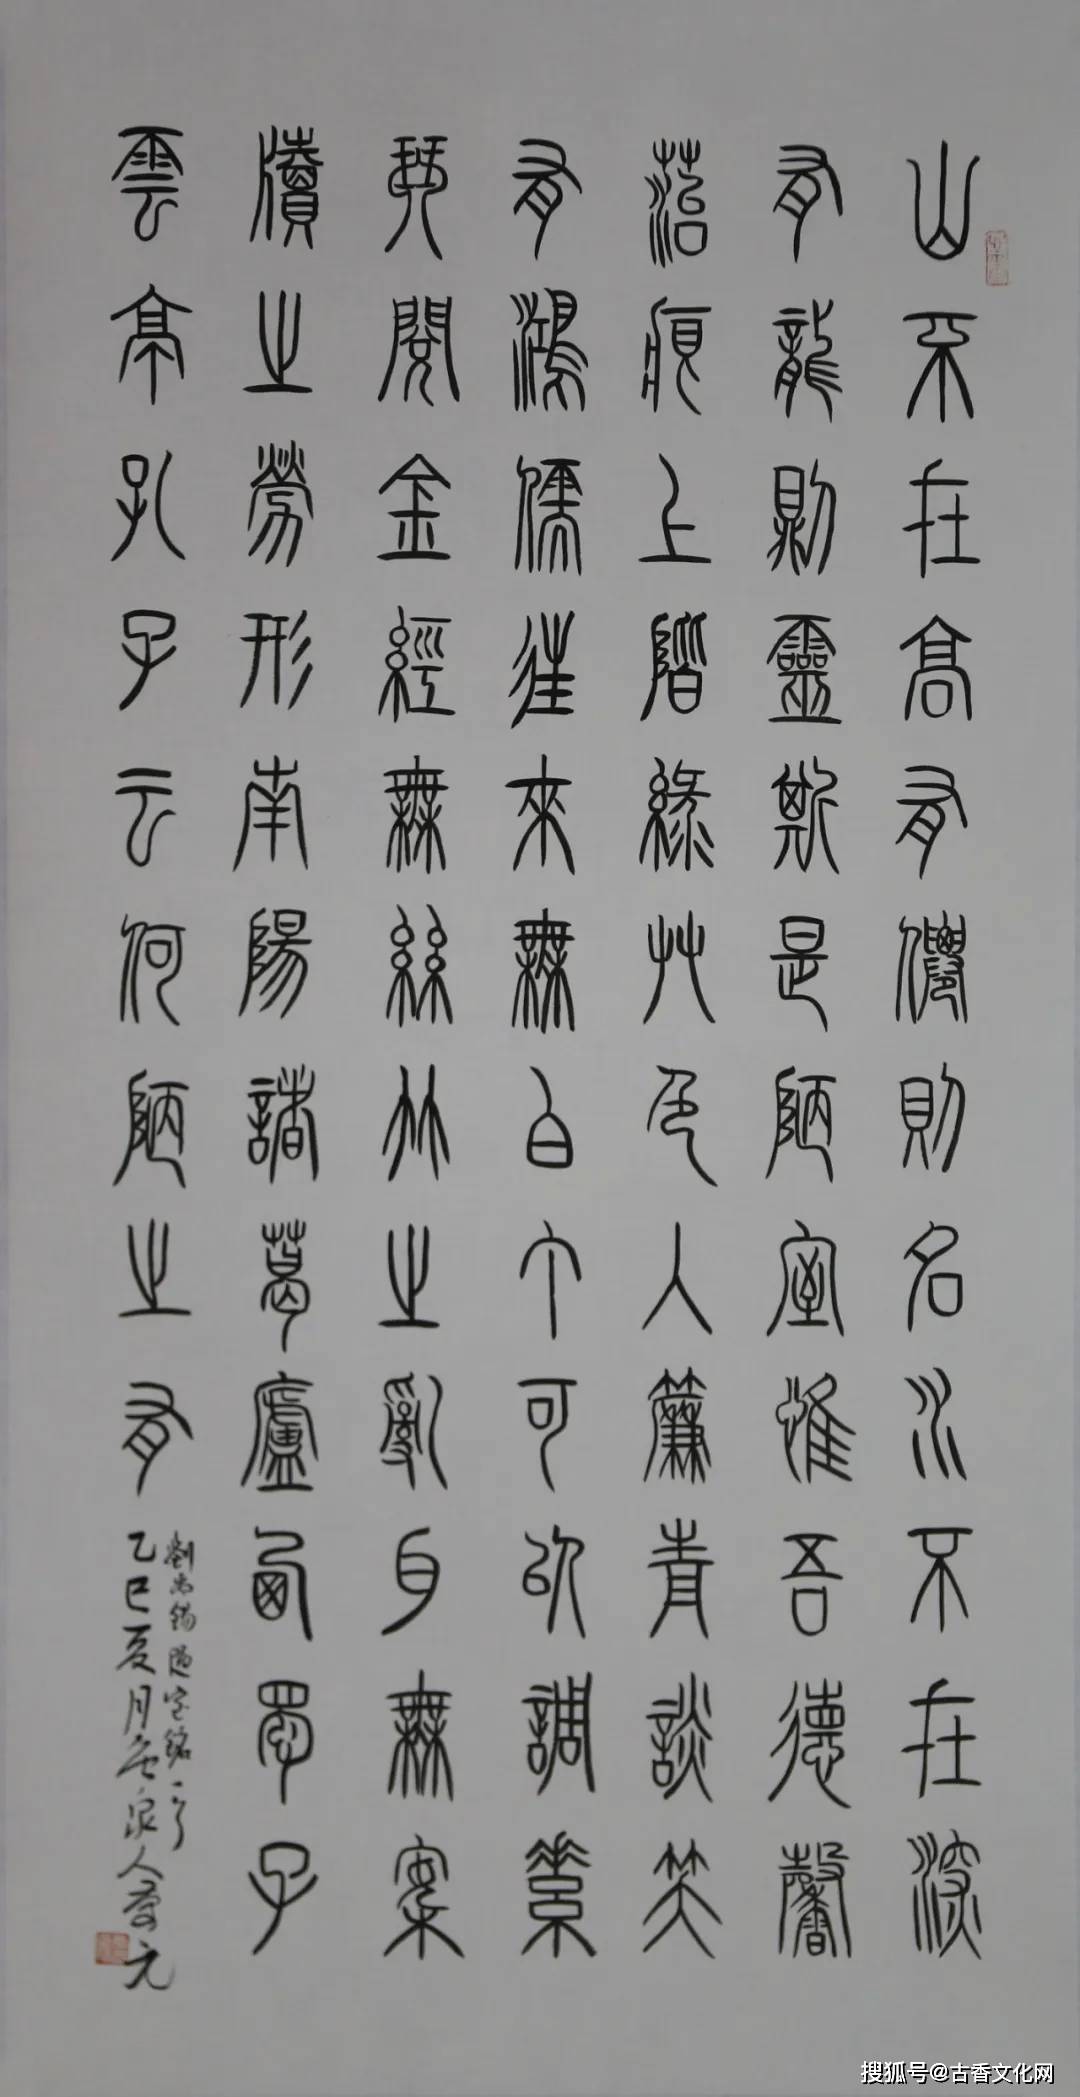 山不在高有僊則名水不在深
有龍則靈斯是陋室惟吾德馨
菭痕上階綠艸色入簾青談笑
有鴻儒往來無白丁可以調素
琴閱金經無絲竹之亂耳無案
牘之勞形南陽諸葛廬西蜀子
雲亭孔子云何陋之有
劉禹錫陋室銘一
乙巳夏月泉人元
搜狐号@古香文化网